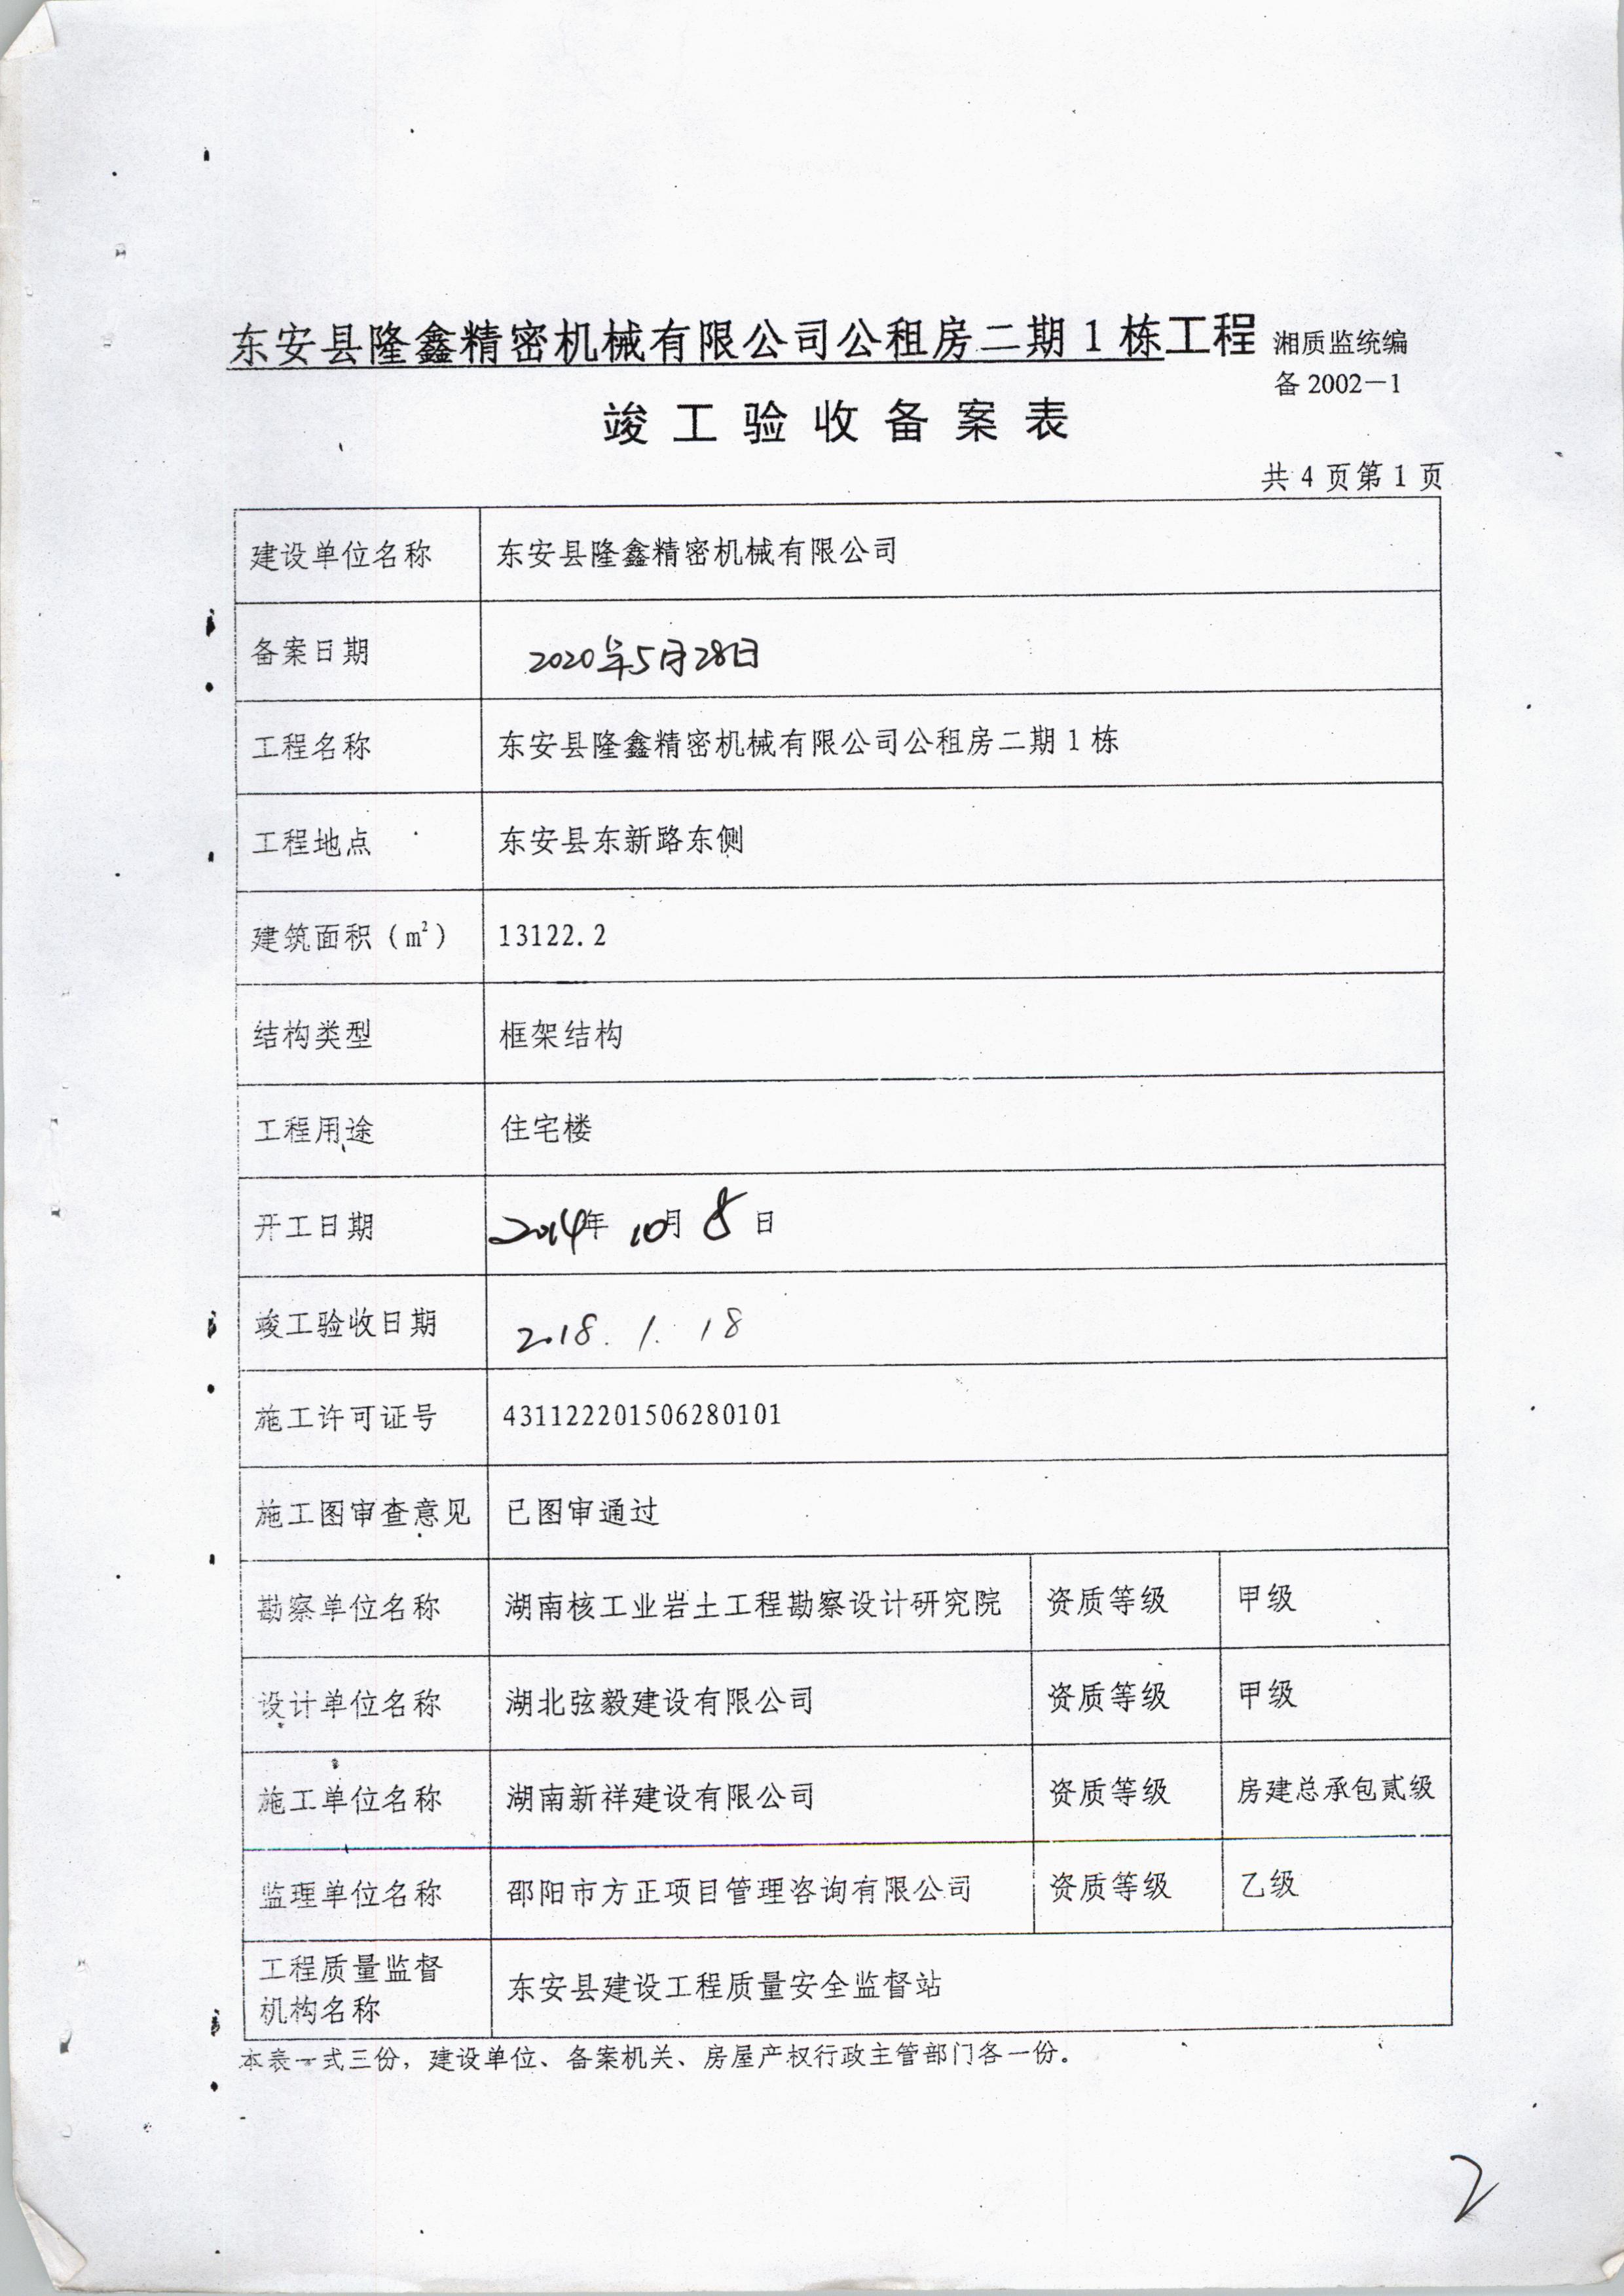 东安县隆鑫精密机械有限公司公租房二期1栋工程 湘质监统编
备2002-1
竣工验收备案表
共4页第1页
建设单位名称 东安县隆鑫精密机械有限公司
备案日期 2020年5月28日
工程名称 东安县隆鑫精密机械有限公司公租房二期1栋
工程地点 东安县东新路东侧
建筑面积(m²) 13122.2
结构类型 框架结构
工程用途 住宅楼
开工日期 2014年10月8日
竣工验收日期 2018.1.18
施工许可证号 431122201506280101
施工图审查意见 已图审通过
勘察单位名称 湖南核工业岩土工程勘察设计研究院 资质等级 甲级
设计单位名称 湖北弦毅建设有限公司 资质等级 甲级
施工单位名称 湖南新祥建设有限公司 资质等级 房建总承包贰级
监理单位名称 邵阳市方正项目管理咨询有限公司 资质等级 乙级
工程质量监督
机构名称 东安县建设工程质量安全监督站
本表一式三份，建设单位、备案机关、房屋产权行政主管部门各一份。
2